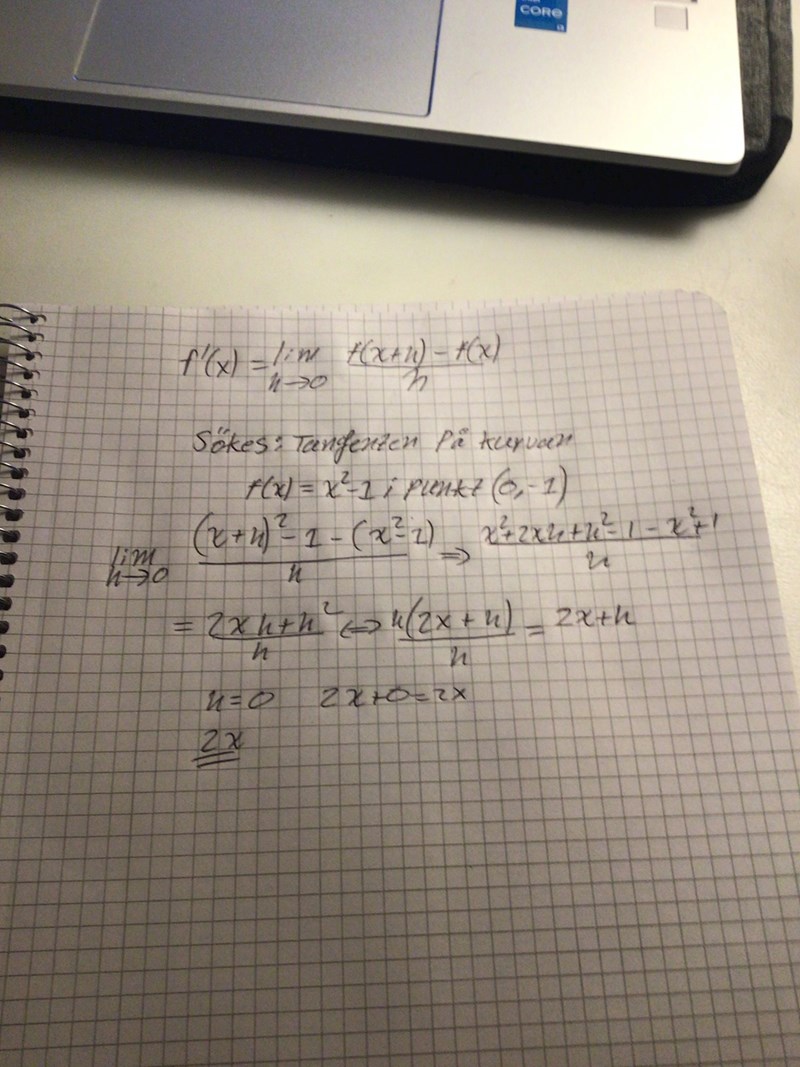 CORE
i3
f'(x) = lim h→0 f(x+h) - f(x) / h
Sökes: Tangenten på kurvan
f(x) = x²-1 i punkt (0,-1)
lim h→0 (x+h)² - 1 - (x²-1) / h ⇒ x²+2xh+h²-1-x²+1 / h
= 2xh+h² / h ⇔ h(2x+h) / h = 2x+h
h=0 2x+0=2x
2x